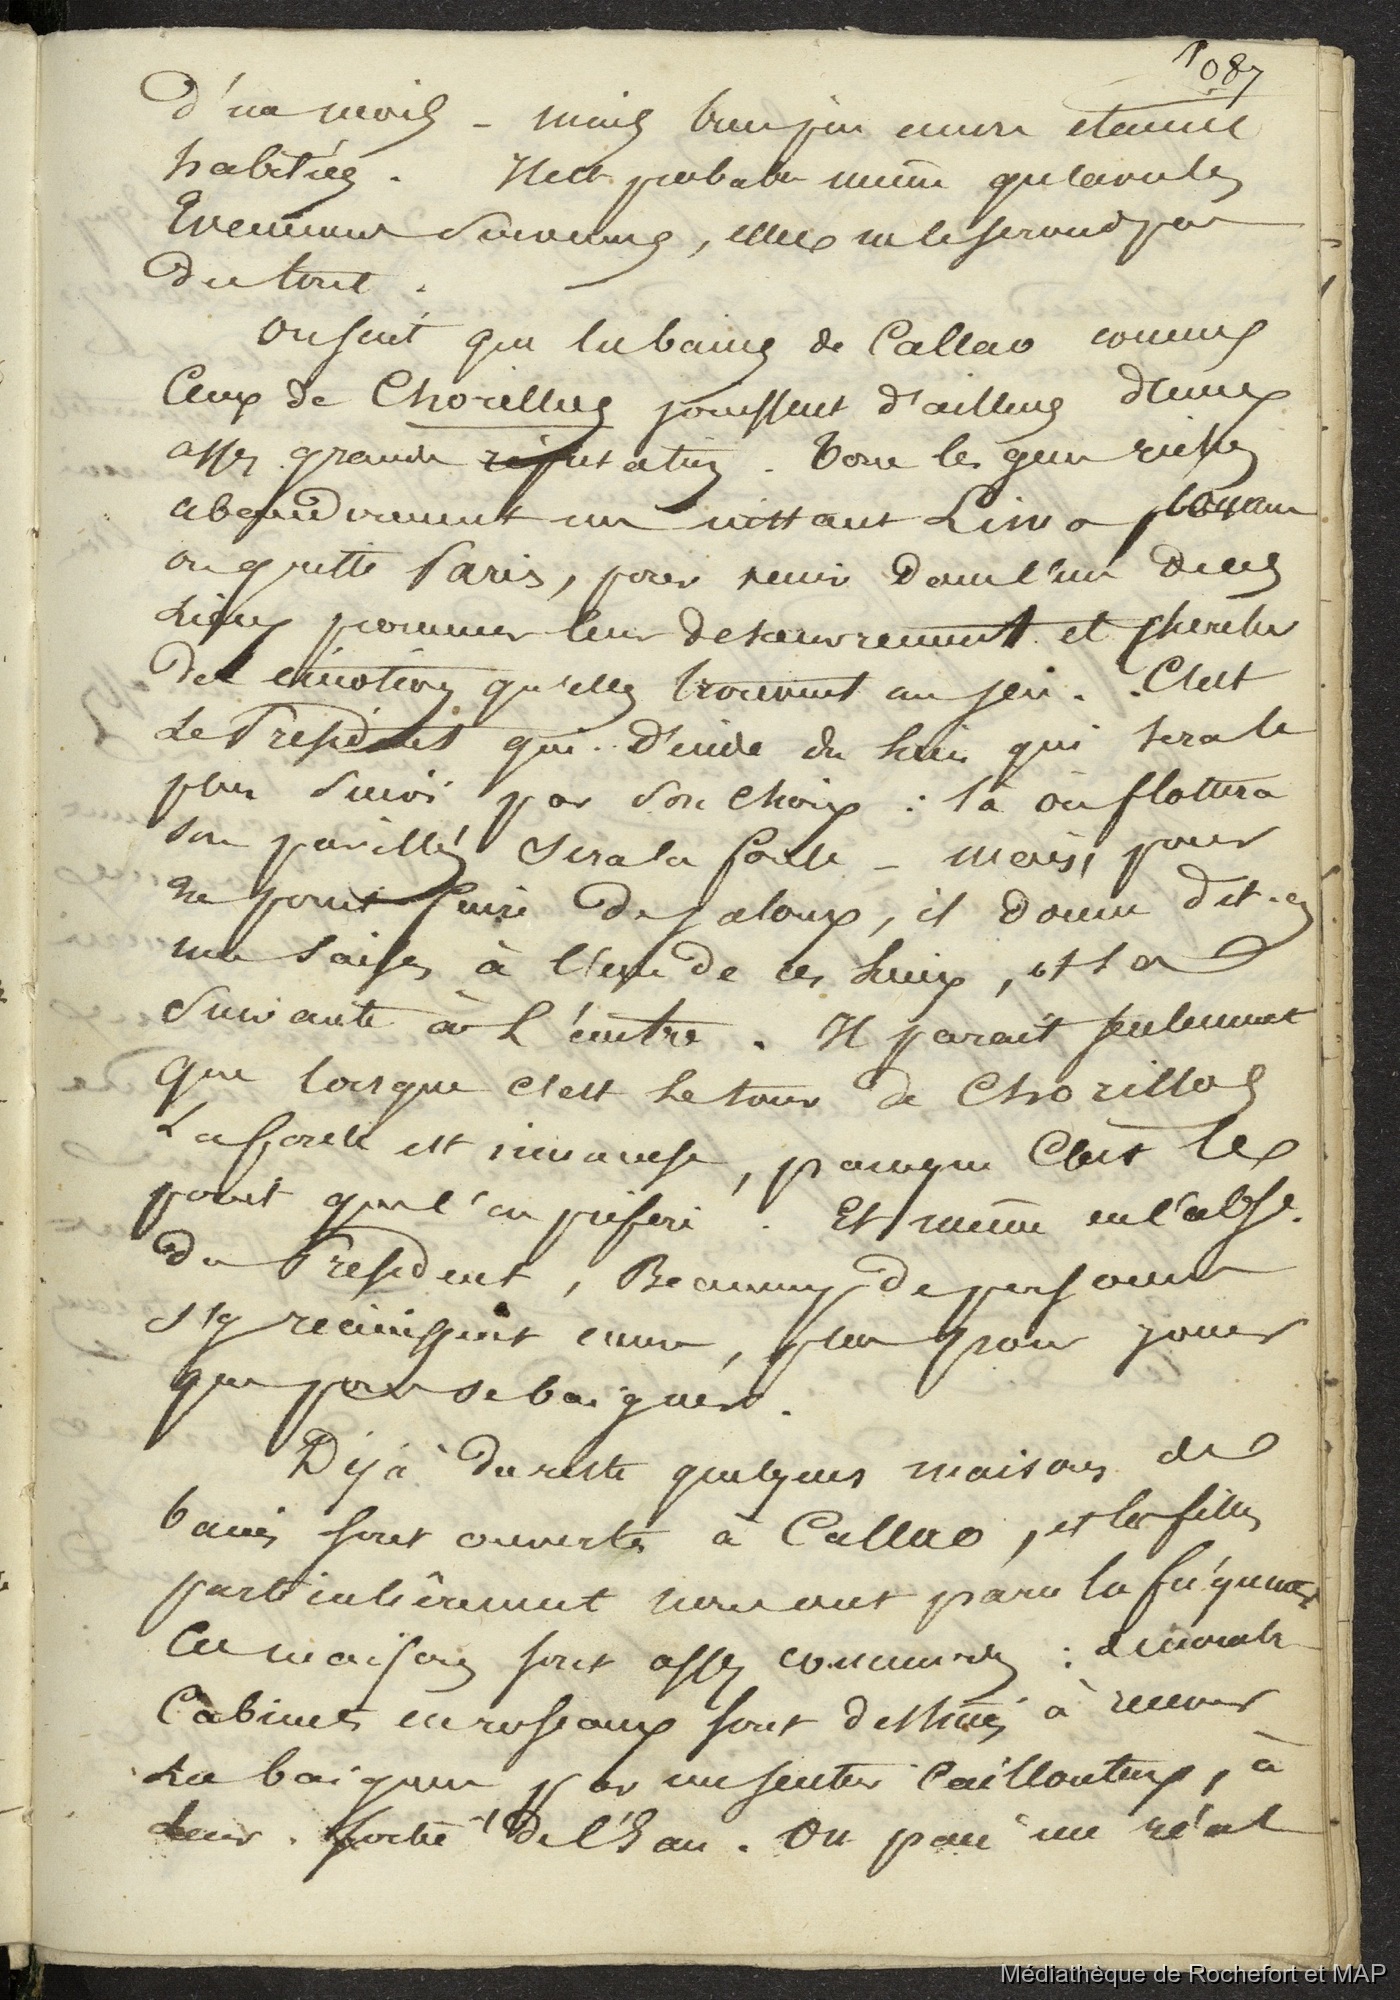 1087
d'un mois - mais bien peu encore étaient
habitées. Il est probable même qu'avec les
Evènements survenus, elles ne le seront pas
du tout.
On sent que les bains de Callao comme
Ceux de Chorillos jouissent d'ailleurs d'une
assez grande réputation. Tous les gens riches
abandonnent un instant Lima comme
on quitte Paris, pour venir dans l'un de ces
Lieux promener leur desœuvrement et chercher
des émotions qu'elles trouvent au jeu. C'est
Le Président qui décide du lieu qui sera le
plus suivi par son choix : là où flottera
son pavillon sera la foule - mais, pour
ne point faire de jaloux, il donne dit-on
une saison à l'un de ces lieux, et la
suivante à L'autre. Il parait seulement
que lorsque c'est le tour de Chorillos
La foule est immense, parceque c'est le
point que l'on préfère. Et même en l'absce.
du Président, Beaucoup de personnes
s'y réunissent encore, plus pour jouer
que pour se baigner.
Déjà du reste quelques maisons de
bains sont ouvertes à Callao, et les filles
particulièrement nous ont paru les fréquenter
Ces maisons sont assez commodes :
Cabinets en roseaux sont destinés à recevoir
Les baigneurs par un sentier caillouteux, à
Leur sortie de l'Eau. On paie un réal